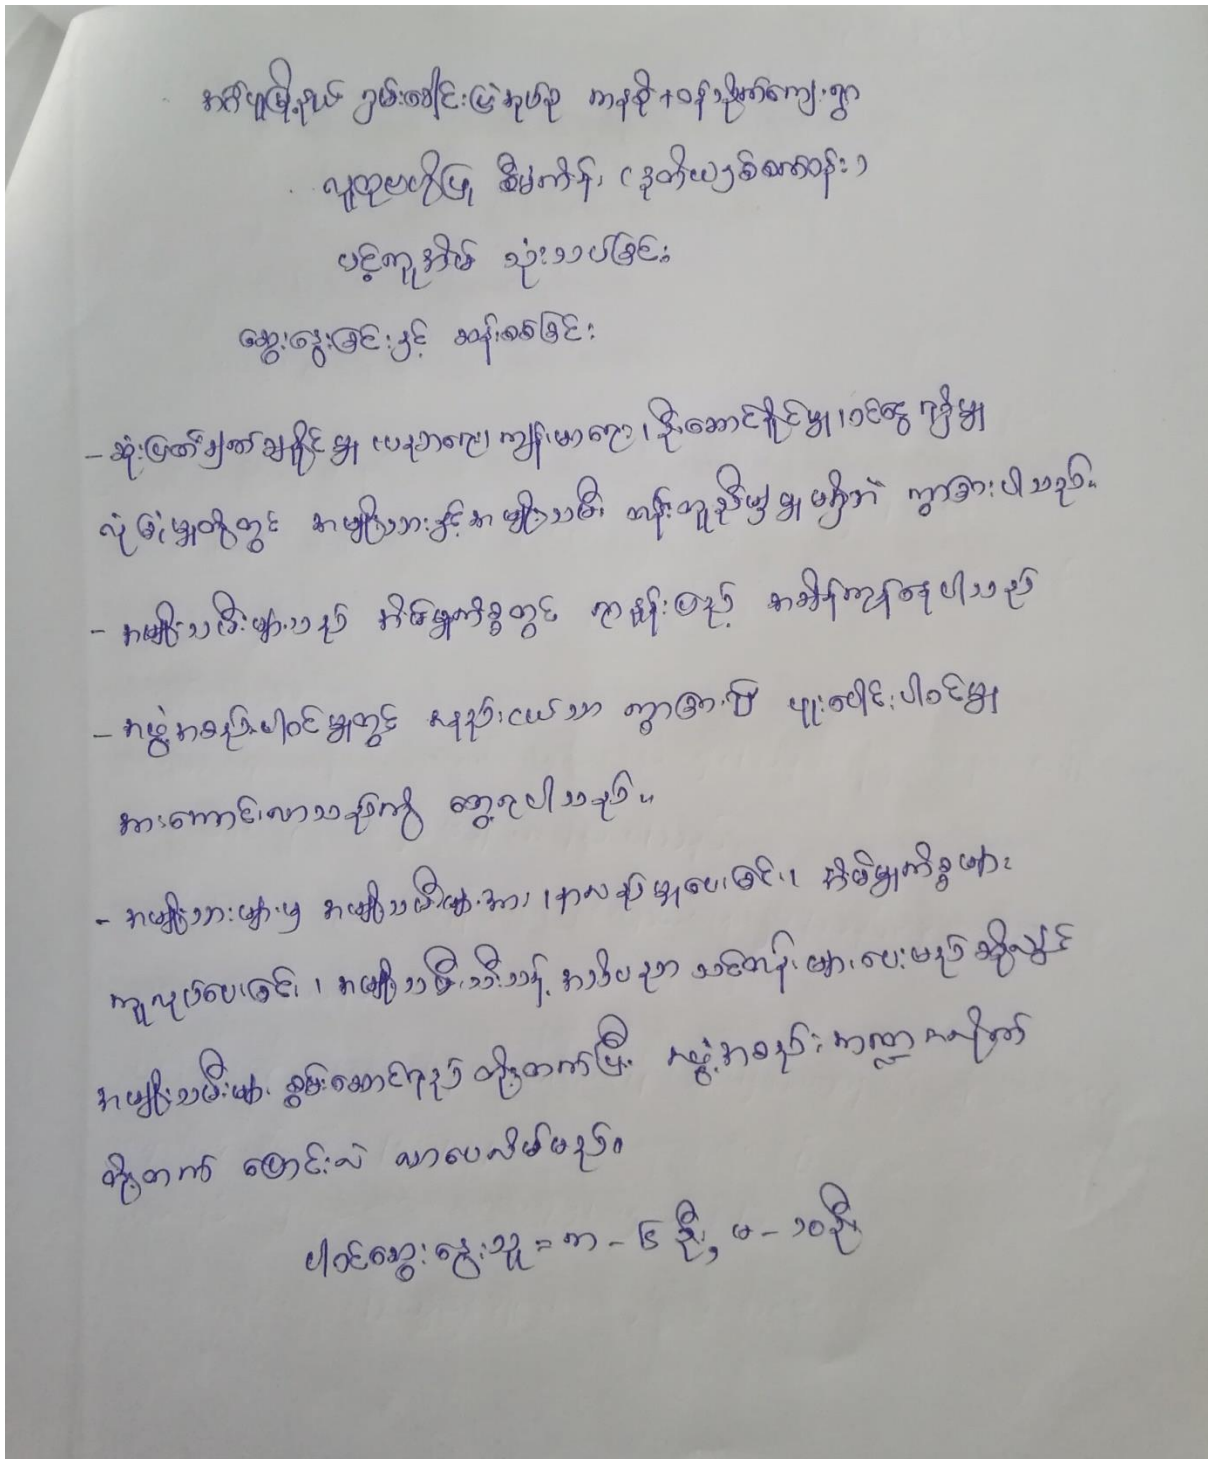 အင်္ဂပူမြို့နယ် ဂွမ်းခေါင်းမြဲအုပ်စု ကနစို+ဝန်သိုက်ကျေးရွာ
လူထုဗဟိုပြု စီမံကိန်း (ဒုတိယ၅စ်ဏာဝန်း)
ပင့်ကူအိမ် သုံးသပ်ခြင်း
ဆွေးနွေးခြင်းနှင့် ဆန်းစစ်ခြင်း
- ဆုံးဖြတ်ချက်ချနိုင်မှု ၊ပညာရေး၊ကျန်းမာရေး၊ဦးဆောင်နိုင်မှု၊ဝင်ငွေရရှိမှု
လုံခြုံမှုတို့တွင် အမျိုးသားနှင့်အမျိုးသမီး တန်းတူညီမျှမှုမရှိဘဲ ကွာခြားပါသည်။
- အမျိုးသမီးများသည် အိမ်မှုကိစ္စတွင် ရာနှုန်းပြည့် အချိန်ကုန်နေပါသည်
- အဖွဲ့အစည်းပါဝင်မှုတွင် အနည်းငယ်သာ ကွာခြားပြီး ပူးပေါင်းပါဝင်မှု
အားကောင်းလာသည်ကို တွေ့ရပါသည်။
- အမျိုးသားများမှ အမျိုးသမီးများအား ၊နားလည်မှုပေးခြင်း၊ အိမ်မှုကိစ္စများ
ကူလုပ်ပေးခြင်း၊ အမျိုးသမီးသီးသန့် အသိပညာ သင်တန်းများပေးမည်ဆိုလျှင်
အမျိုးသမီးများ စွမ်းဆောင်ရည် တိုးတက်ပြီး အဖွဲ့အစည်း ကဏ္ဍအလိုက်
တိုးတက် ပြောင်းလဲ လာပေလိမ့်မည်။
ပါဝင်ဆွေးနွေးသူ = ကာ - ၆ ဦး, မ - ၁၀ဦး